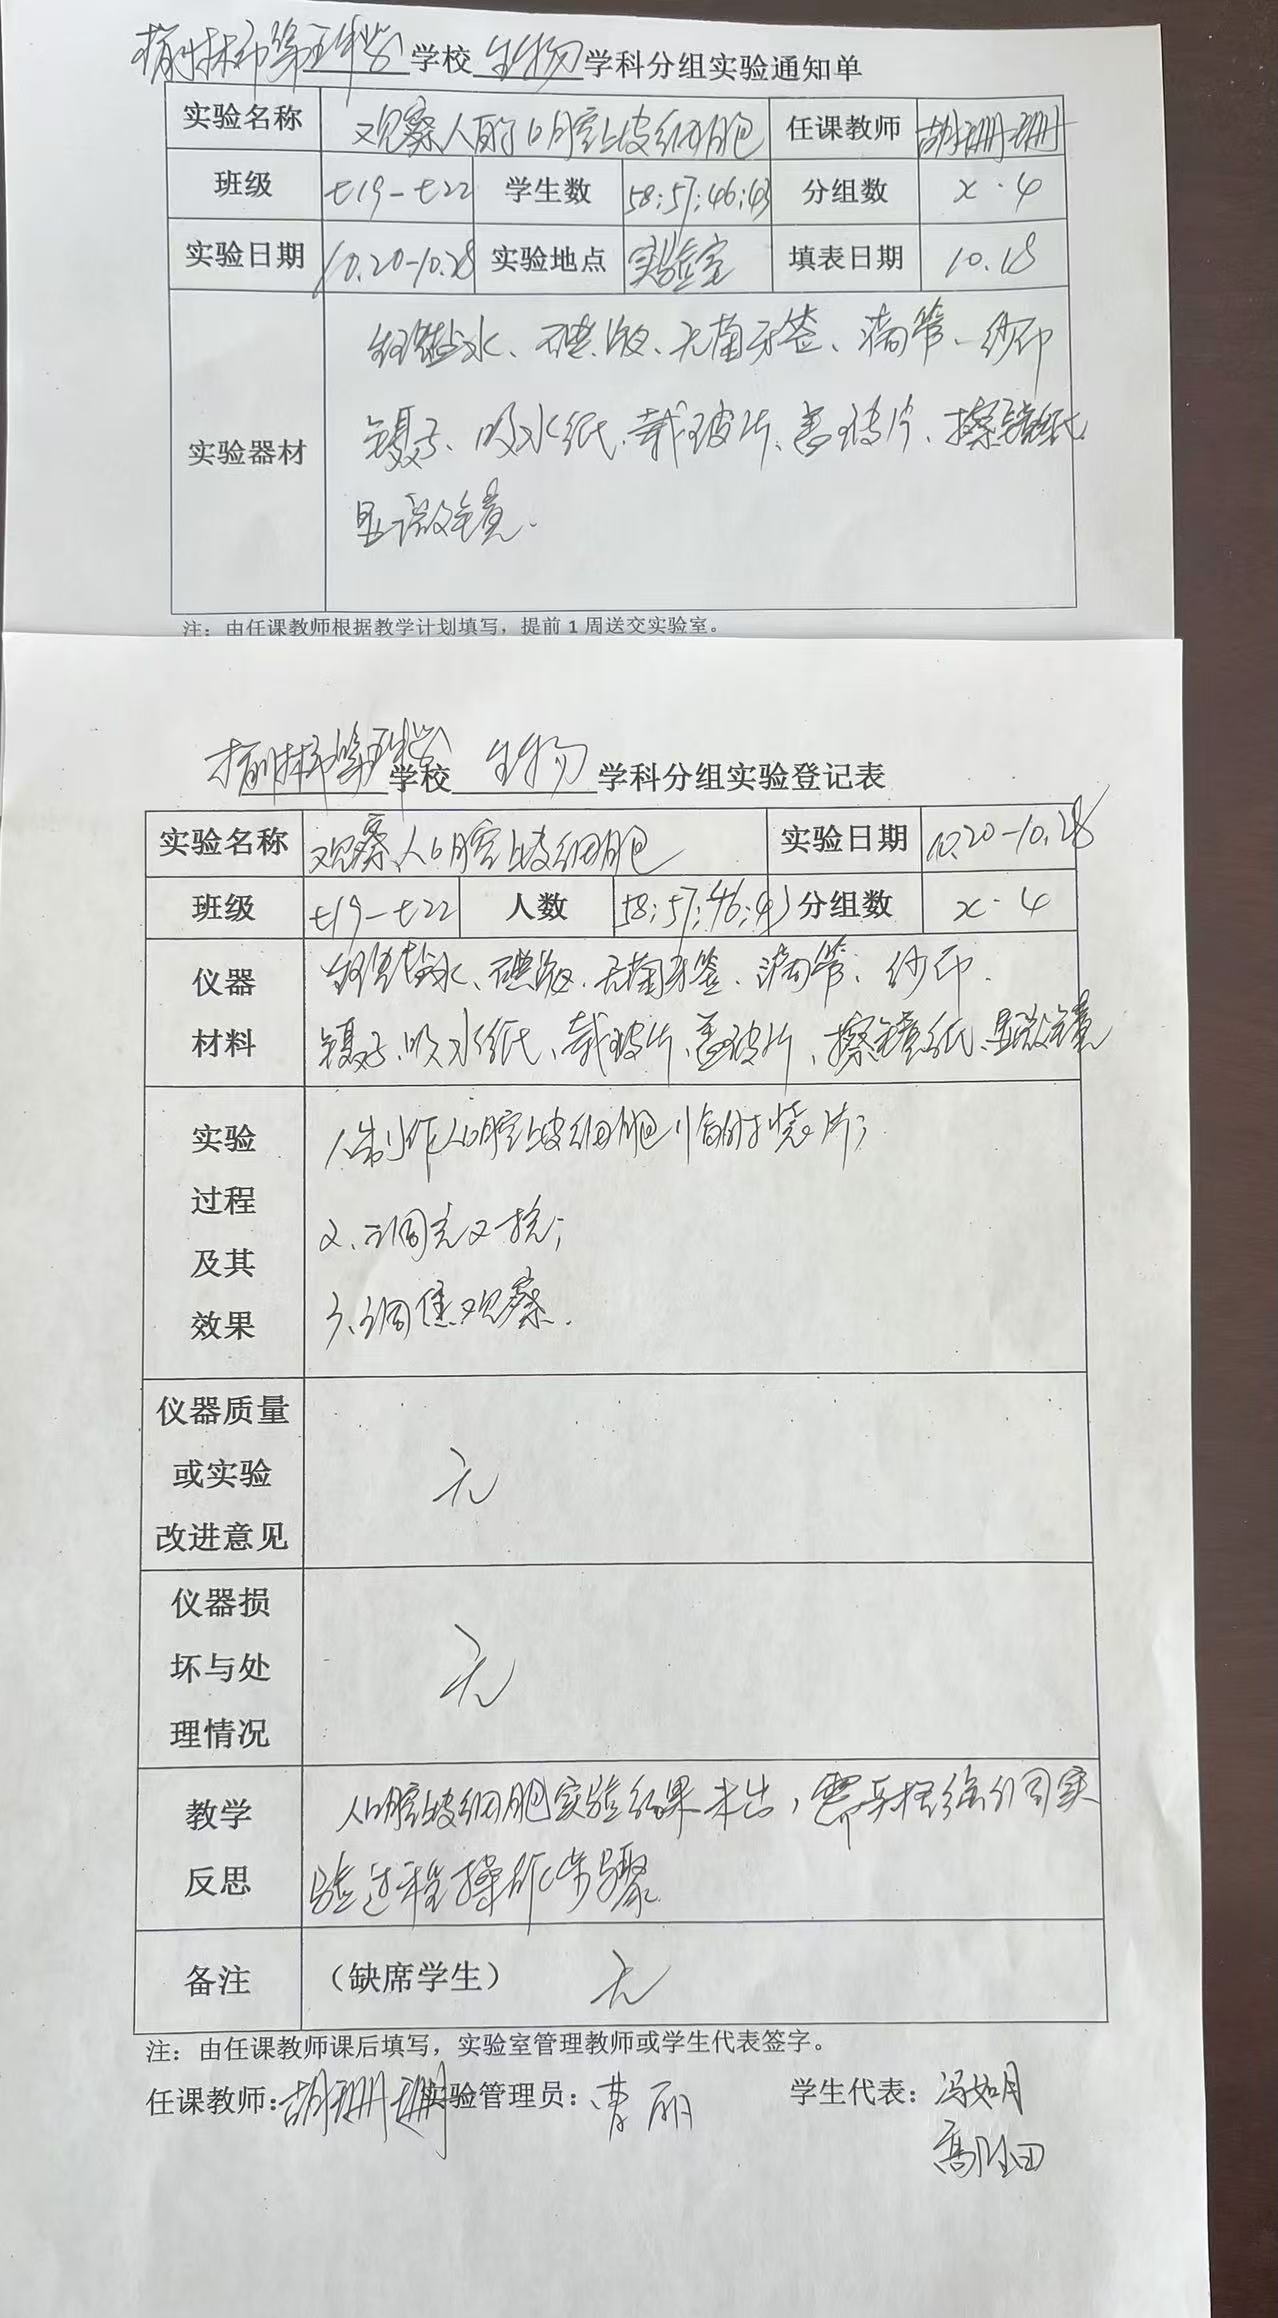 榆林市第五中学学校 生物 学科分组实验通知单
实验名称 观察人的口腔上皮细胞 任课教师 胡珊珊
班级 七19-七22 学生数 58;57;46;43 分组数 x·4
实验日期 10.20-10.28 实验地点 实验室 填表日期 10.18
实验器材
生理盐水、碘液、无菌牙签、滴管、纱布
镊子、吸水纸、载玻片、盖玻片、擦镜纸
显微镜.
注：由任课教师根据教学计划填写，提前 1 周送交实验室。
榆林市第五中学学校 生物 学科分组实验登记表
实验名称 观察人口腔上皮细胞 实验日期 10.20-10.28
班级 七19-七22 人数 58;57;46;43 分组数 x·4
仪器
材料
生理盐水、碘液、无菌牙签、滴管、纱布.
镊子、吸水纸、载玻片、盖玻片、擦镜纸、显微镜
实验
过程
及其
效果
1、制作人口腔上皮细胞临时装片；
2、调光对光；
3、调焦观察.
仪器质量
或实验
改进意见
无
仪器损
坏与处
理情况
无
教学
反思
人口腔上皮细胞实验结果未出，需再
验过程操作步骤
备注 （缺席学生） 无
注：由任课教师课后填写，实验室管理教师或学生代表签字。
任课教师：胡珊珊 实验管理员：曹丽 学生代表：冯如月
高